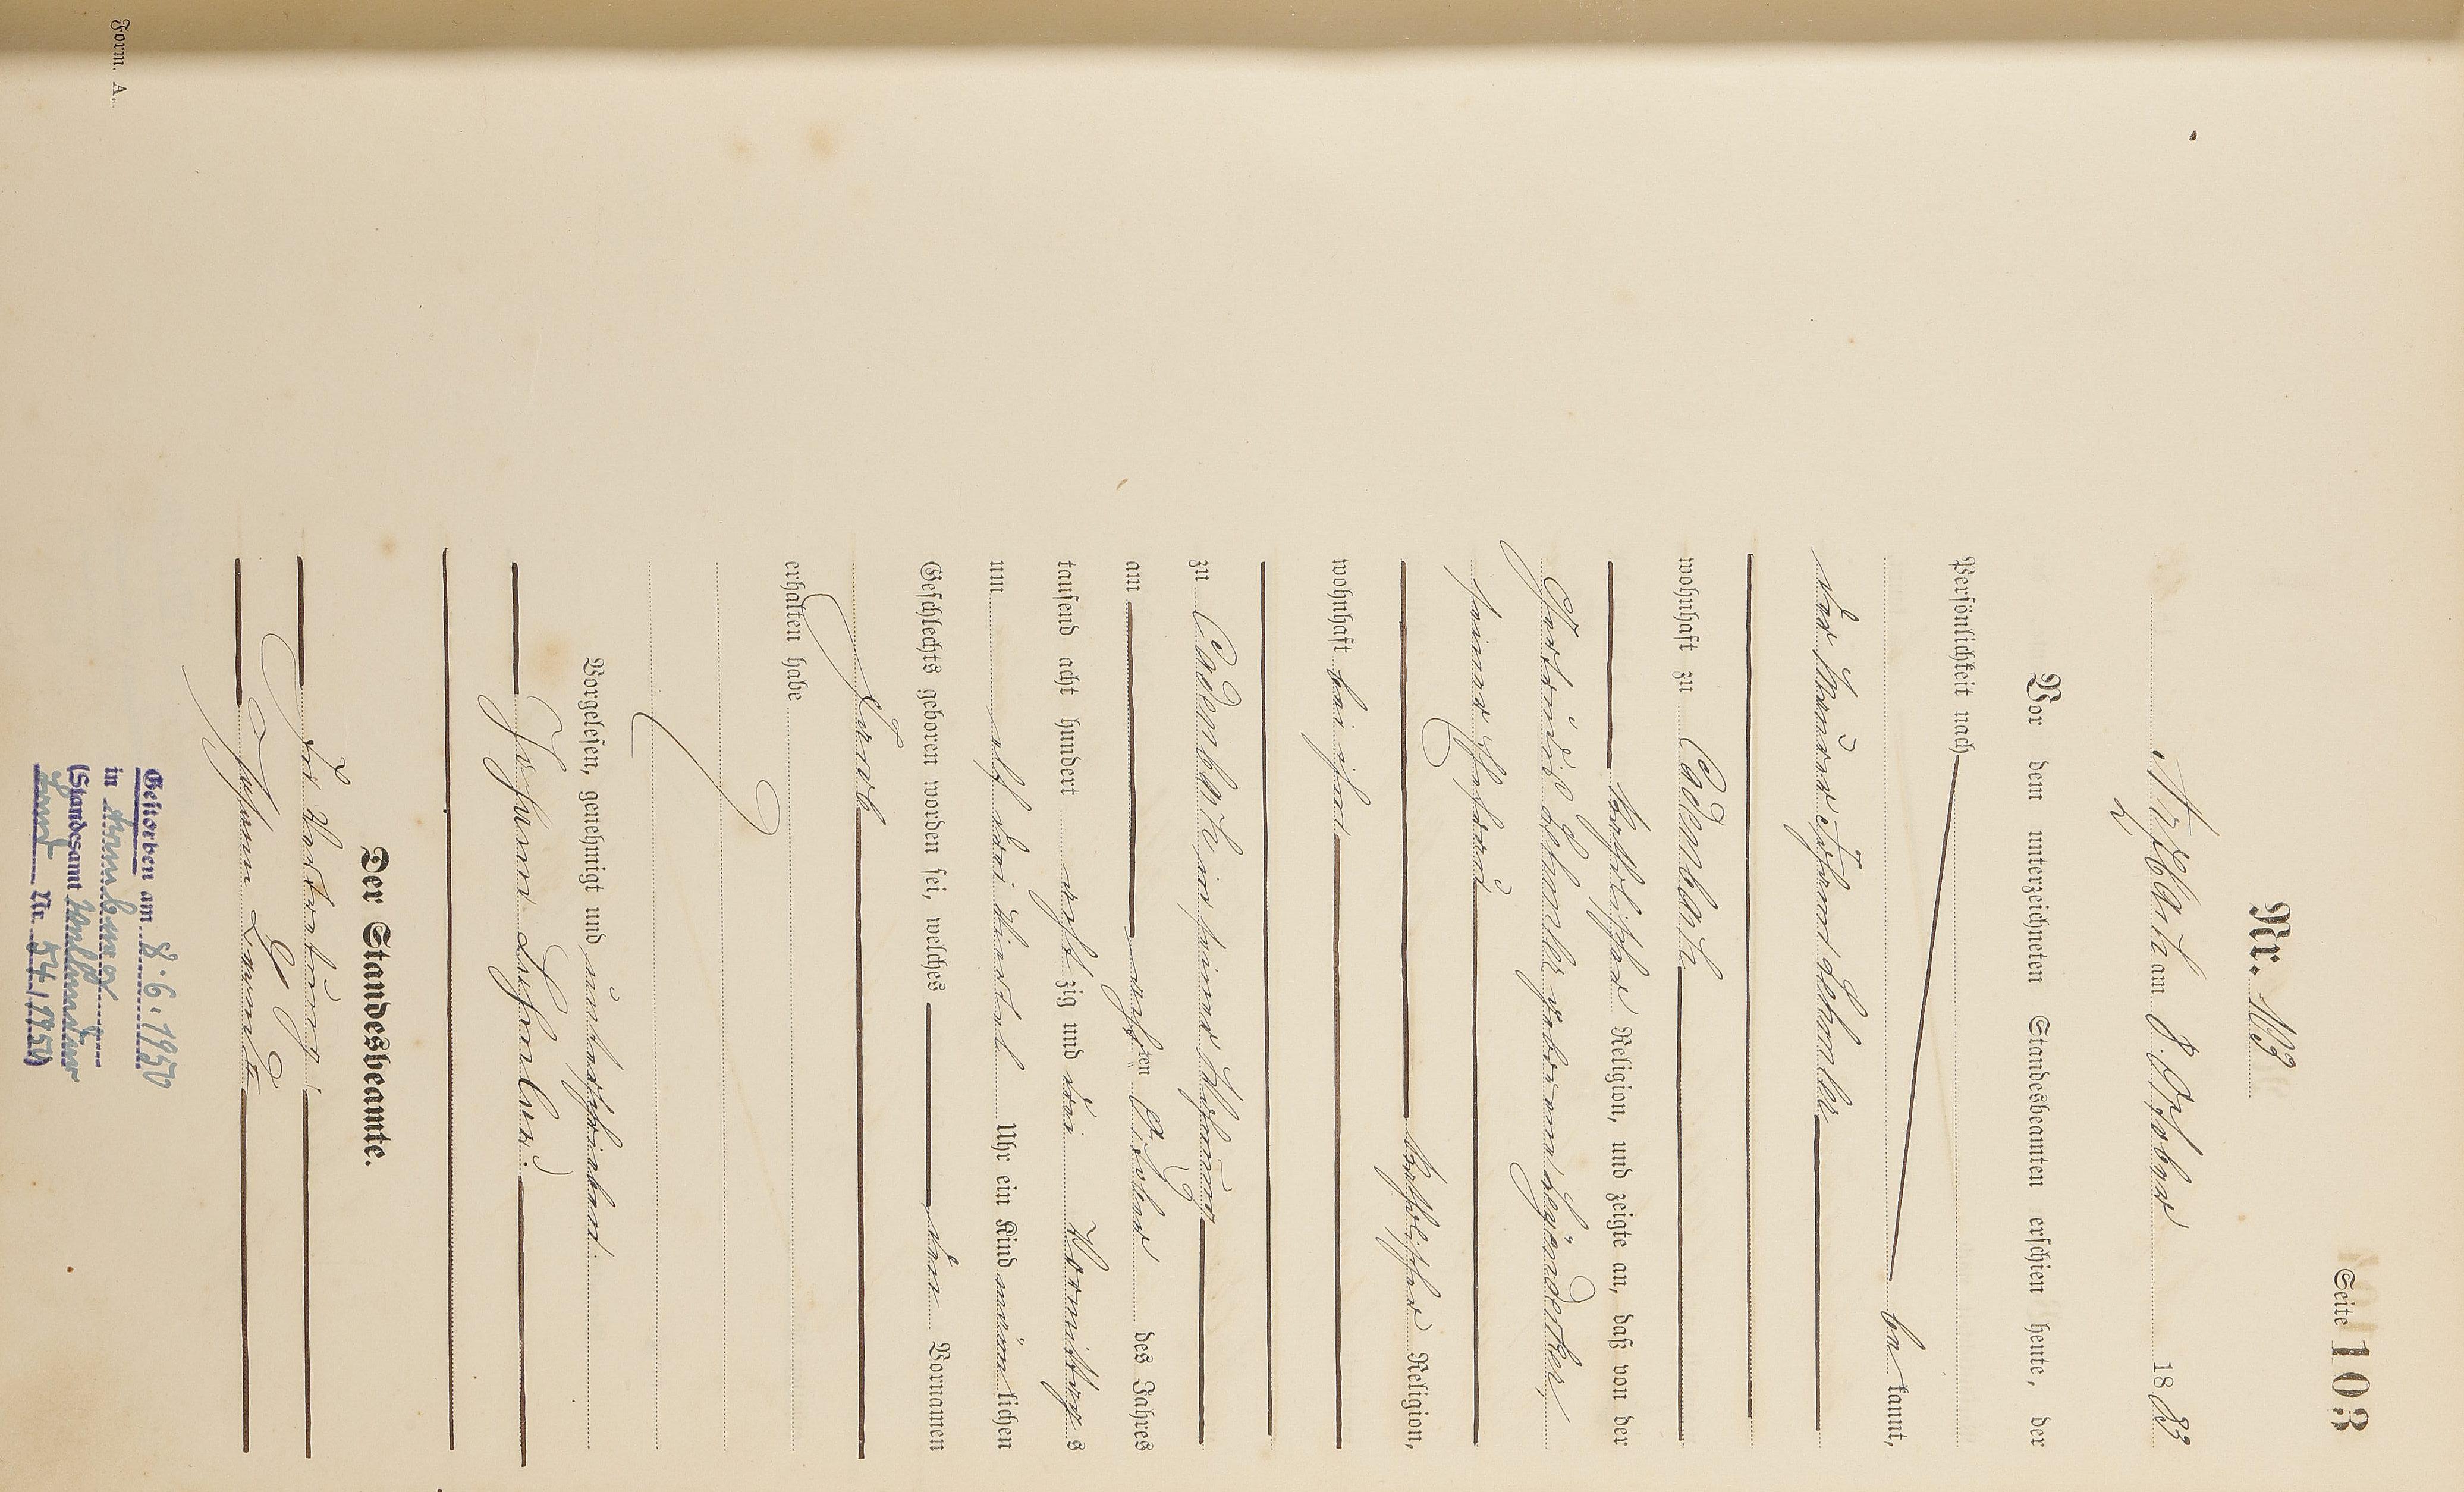 Seite 103
Nr. 103
Arzbach am 8. October 1883
Vor dem unterzeichneten Standesbeamten erschien heute, der
Persönlichkeit nach
be kannt,
der Maurer Johann Lehmler
wohnhaft zu Cadenbach
katholischer Religion, und zeigte an, daß von der
Gertrud Lehmler geborenen
seiner Ehefrau
katholischer Religion,
wohnhaft bei ihm
zu Cadenbach in seiner Wohnung
am achten October des Jahres
tausend acht hundert acht zig und drei Vormittag s
um elf drei Viertel Uhr ein Kind männ lichen
Geschlechts geboren worden sei, welches den Vornamen
Jacob
erhalten habe
Vorgelesen, genehmigt und unterschrieben
Johann Lehmler
Der Standesbeamte.
In Vertretung:
Johann
Gestorben am 8.6.1950
in
(Standesamt
Nr. 54/1950)
Form. A.